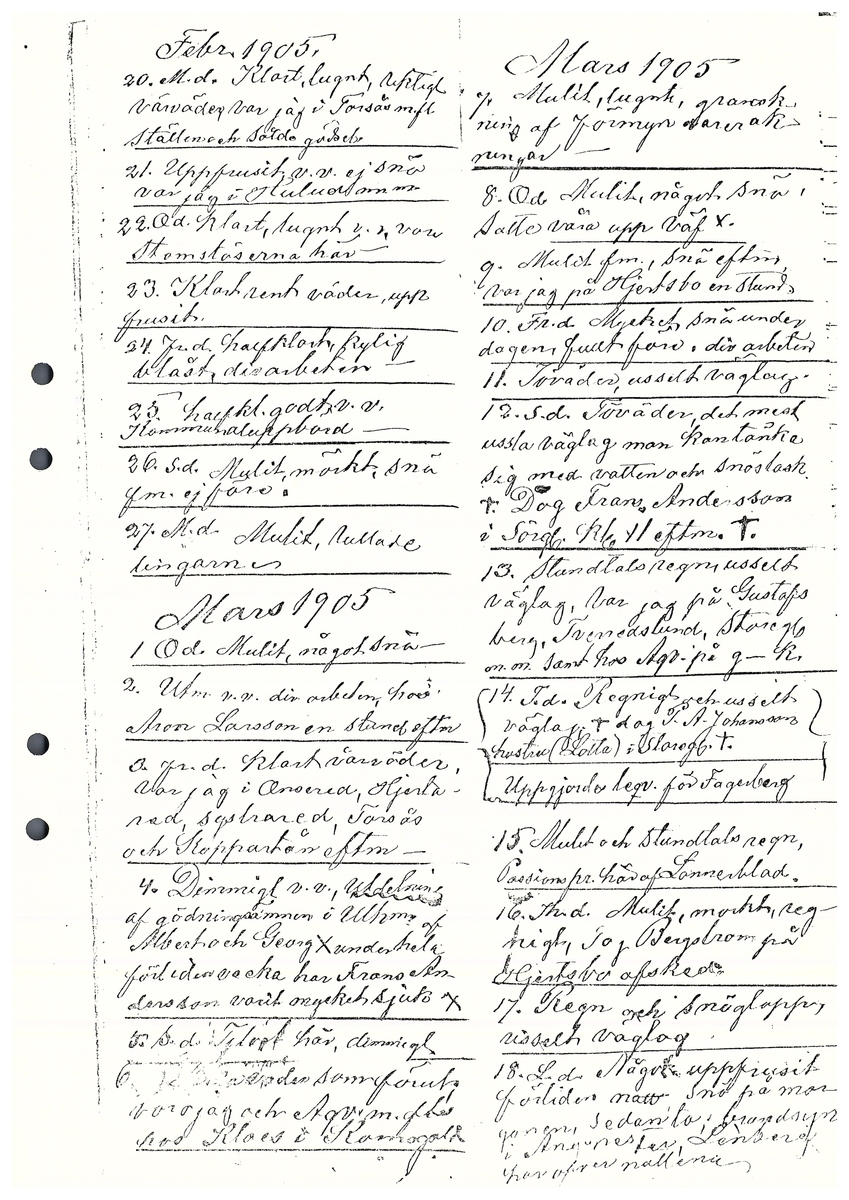 Febr. 1905.
20. M.d. Klart, lugnt, riktigt
vårväder var jag i Torsås m.fl
ställen och sålde gödsel
21. Uppfrusit v.v. ej snö
var jag i
22. Od. Klart, lugnt v.v, voro
här
23. Klart rent väder, upp
frusit.
24. Fr.d. halfklart, kylig
blåst, div arbeten
25. halfkl. godt v.v.
Kommunaluppbörd
26. S.d. Mulit, mörkt, snö
fm. ej före.
27. M.d. Mulit, rullade
lingarne
Mars 1905
1 Od. Mulit, något snö
2. Utm v.v. div arbeten, hos
Aron Larsson en stund eftm
3. Fr.d. Klart vårväder,
var jag i Önsered, Hjerta-
red, Sjöstrared, Torsås
och Koppartån eftm
4. Dimmigt v.v., Utdelning
af gödningsämnen i Ulhm af
Albert och Georg X under hela
förliden vecka har Frans An
dersson varit mycket sjuk X
5. S.d. här, dimmigt
6. som förut,
voro jag och Agv. m.fl
hos Klaes i
Mars 1905
7. Mulit, lugnt, gransk
ning af förmyndareräk
ningar
8. Od Mulit, något snö,
satte våra upp väf X.
9. Mulit fm., snö eftm,
var jag på Hjertsbo en stund.
10. Fr.d. Mycket snö under
dagen, fullt före. div arbeten
11. Töväder, usselt väglag.
12. S.d. Töväder, det mest
ussla väglag man kan tänka
sig med vatten och snöslask.
†. Dog Frans Andersson
i Sörgb. Kl. 11 eftm. †.
13. Stundtals regn, usselt
väglag, var jag på Gustafs
berg, Tvenedslund, Storegb
m.m. samt hos Agv. på g-k.
14. T.d. Regnigt och usselt
väglag. † dog P. A. Johansson
hustru (Lotta) i Storegb. †.
Uppgjorde leqv. för Fagerberg
15. Mulit och stundtals regn,
Passionspr. här af Lönnerblad.
16. Th.d. Mulit, mörkt, reg-
nigt, Tog Bergstrom på
Hjertsbo afsked.
17. Regn och snöglopp,
usselt väglag
18. L.d. Något uppfrusit
förliden natt snö på mor
gonen, sedan tö, brandsyn
i